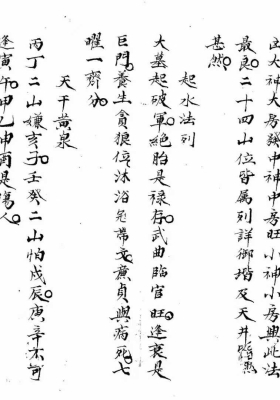 位大神大房發中神中房旺小神小房興此法
最良二十四山位皆屬列詳御堦及天井皆然
甚然
起水法列
大墓起破軍絕胎是祿存武曲臨官旺逢衰是
巨門養生貪狼位沐浴冠帶文廉貞與病死七
曜一齊分
天干黃泉
丙丁二山嫌亥子壬癸二山怕戌辰庚辛不可
逢寅午甲乙申酉是傷人